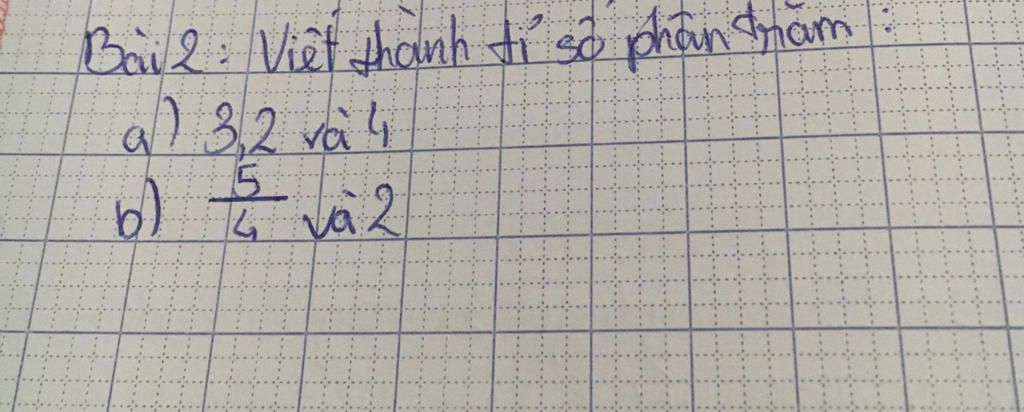 Bài 2: Viết thành tỉ số phần trăm:
a) 3,2 và 4
b) 5/4 và 2